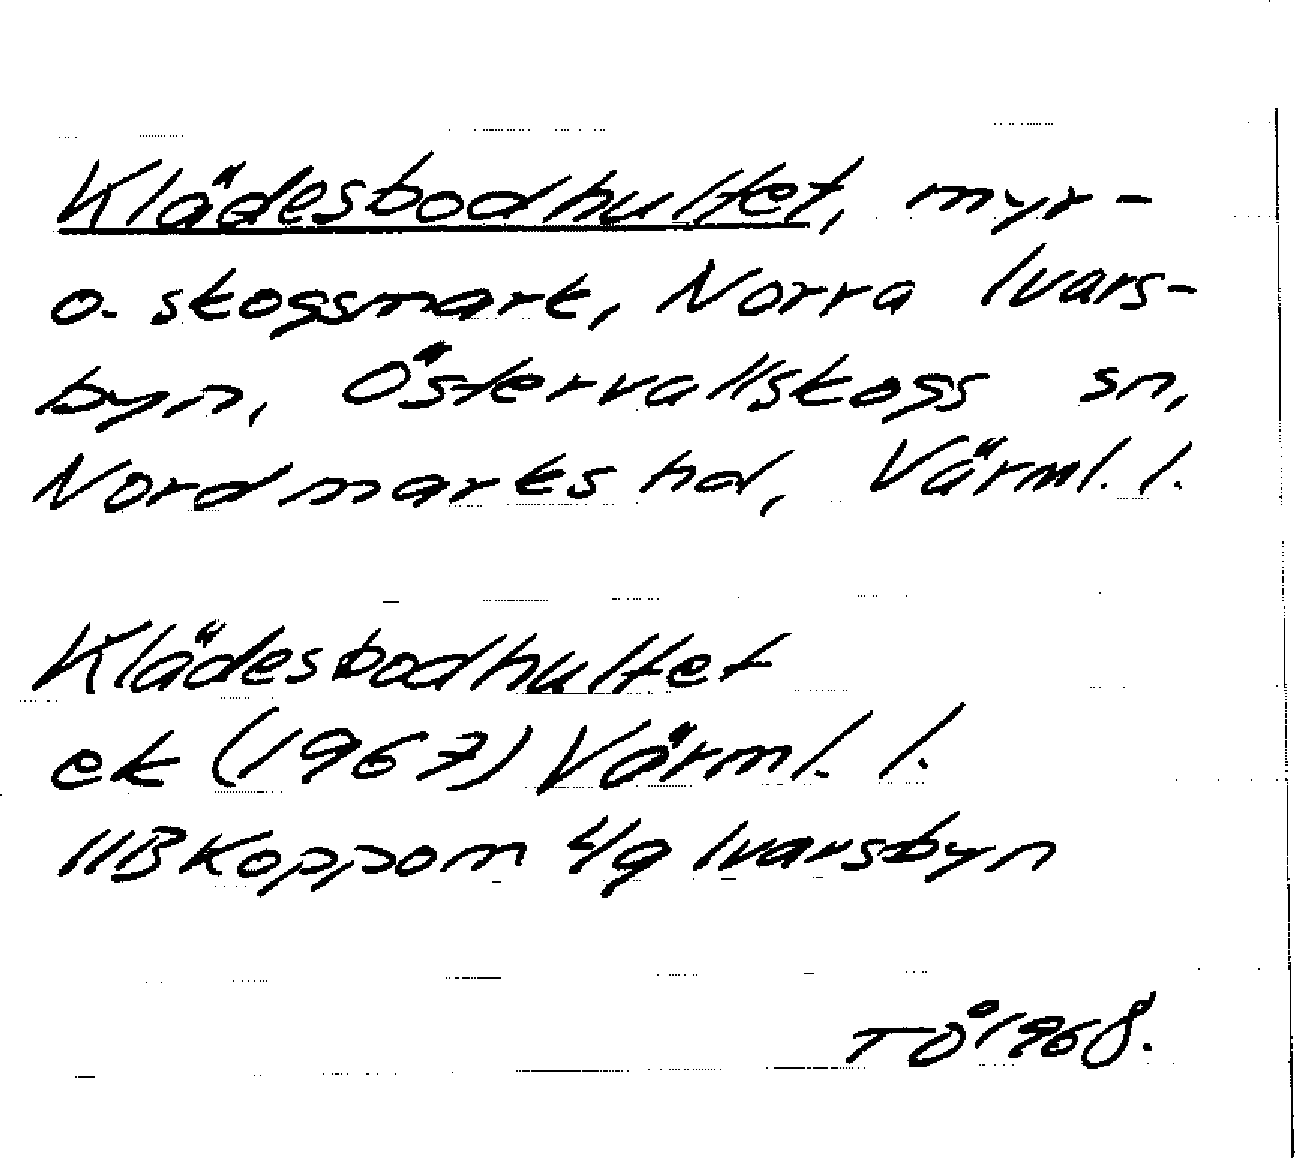 Klädesbodhultet, myr-
o. skogsmark, Norra Ivars-
byn, Östervallskogs sn,
Nordmarks hd, Värml. l.
Klädesbodhultet
ek (1967) Värml. l.
11B Koppom 4g Ivarsbyn
TÖ 1968.